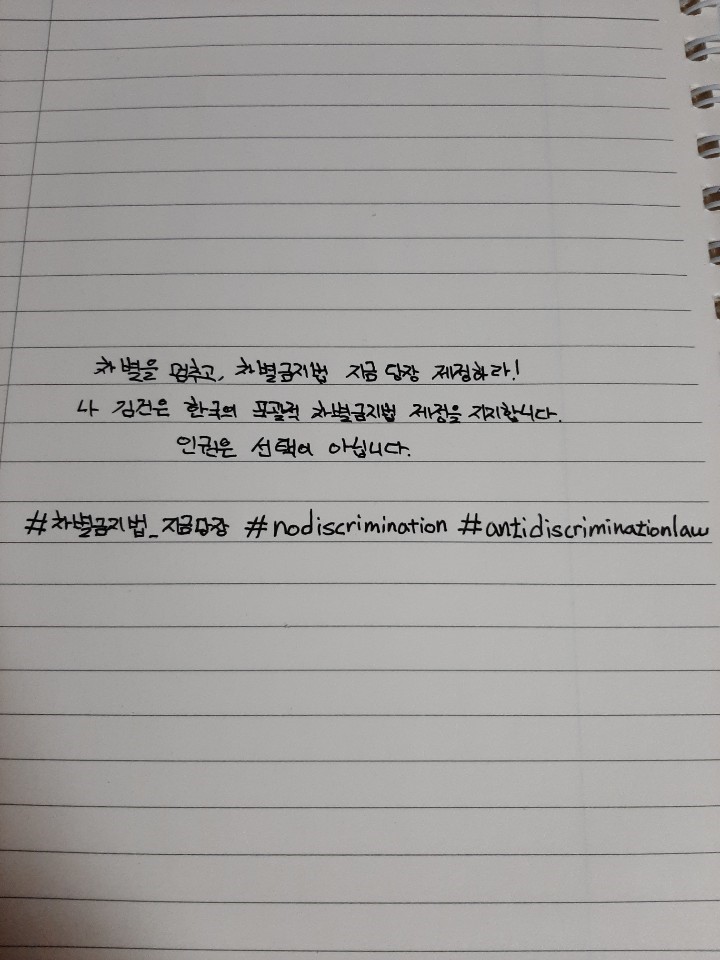 차별을 멈추고, 차별금지법 지금 당장 제정하라!
나 김건은 한국의 포괄적 차별금지법 제정을 지지합니다.
인권은 선택이 아닙니다.
#차별금지법_지금당장 #nodiscrimination #antidiscriminationlaw